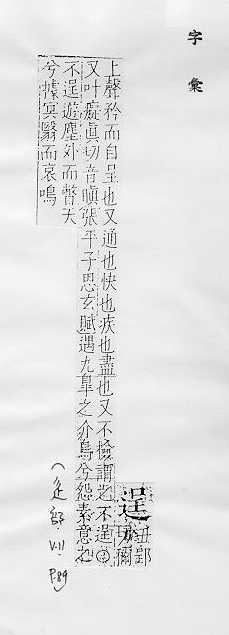 字彙
逞
丑郢
切稱
上聲矜而自呈也又通也快也疾也盡也又不檢謂之不逞○
又叶癡真切音嗔張平子思玄賦遇九皋之介鳥兮怨素意之
不逞遊塵外而瞥天
兮據冥翳而哀鳴
(辵部 V.11. P.89